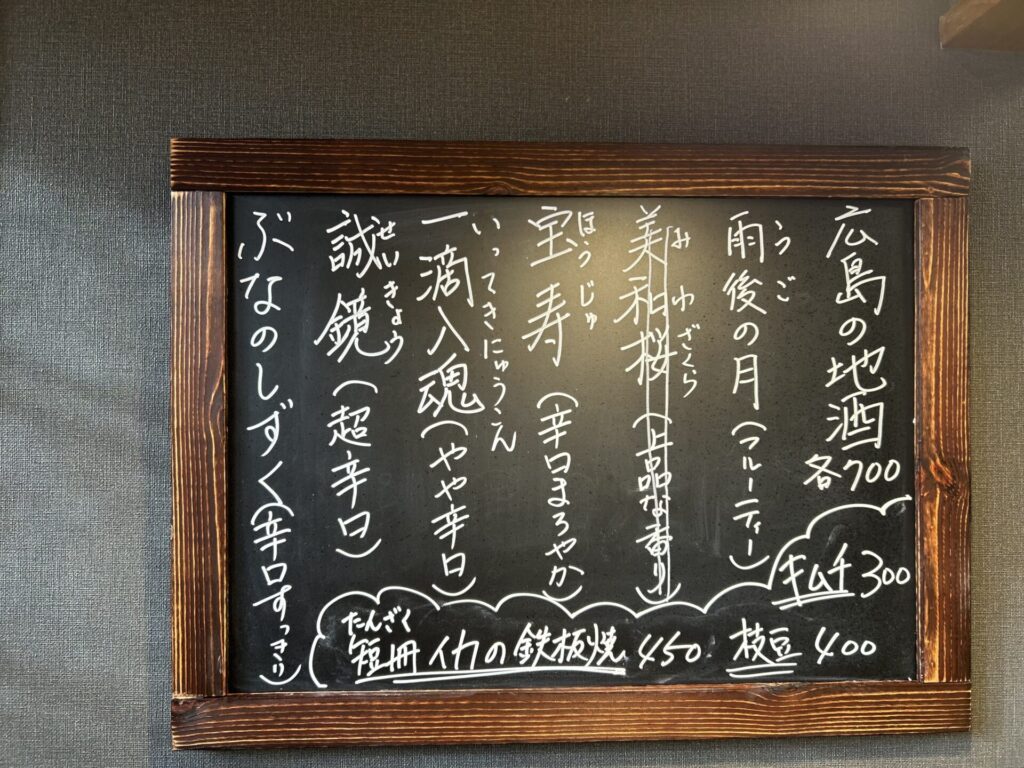 広島の地酒
各700
うご
雨後の月(フルーティー)
みわざくら
美和桜(上品な香り)
ほうじゅ
宝寿(辛口まろやか)
いってきにゅうこん
一滴入魂(やや辛口)
せいきょう
誠鏡(超辛口)
ぶなのしずく(辛口すっきり)
キムチ300
たんざく
短冊イカの鉄板焼 450
枝豆 400